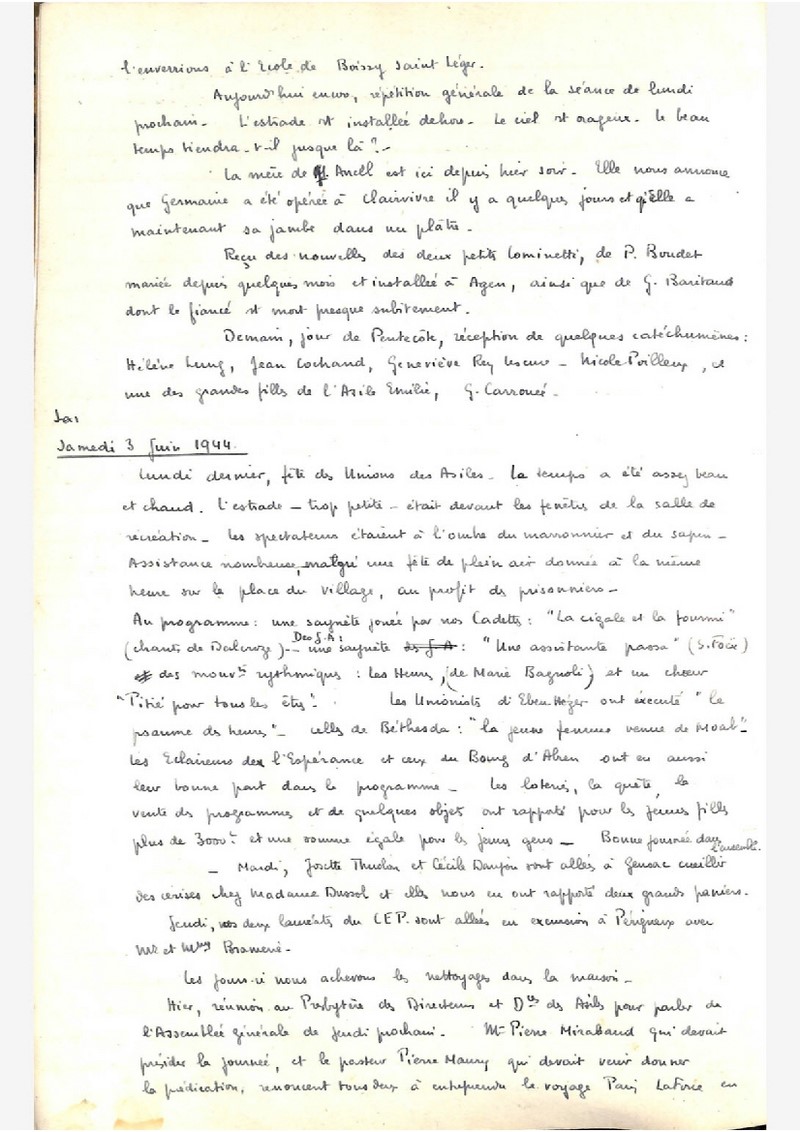 l'enverrions à l'Ecole de Boissy Saint Léger.
Aujourd'hui encore, répétition générale de la séance de lundi
prochain - L'estrade est installée dehors - Le ciel est orageux - Le beau
temps tiendra-t-il jusque là ? -
La mère de M. Anell est ici depuis hier soir - Elle nous annonce
que Germaine a été opérée à Clairvivre il y a quelques jours et qu'elle a
maintenant sa jambe dans un plâtre -
Reçu des nouvelles des deux petits Cominetti, de P. Boudet
mariée depuis quelques mois et installée à Agen, ainsi que de G. Baritaud
dont le fiancé est mort presque subitement.
Demain, jour de Pentecôte, réception de quelques catéchumènes :
Hélène Lung, Jean Cochand, Geneviève Rey Lescure - Nicole Poilleux, et
une des grandes filles de l'Asile Emilie, G. Carrouée -
Sa
Samedi 3 Juin 1944.
Lundi dernier, fête des Unions des Asiles - Le temps a été assez beau
et chaud. L'estrade - trop petite - était devant les fenêtres de la salle de
récréation - Les spectateurs étaient à l'ombre du marronnier et du sapin -
Assistance nombreuse, malgré une fête de plein air donnée à la même
heure sur la place du village, au profit des prisonniers -
Au programme : une saynète jouée par nos Cadettes : "La cigale et la fourmi"
(chants de Dalcroze) - Des G.A : une saynète des G A : "Une assistante passa" (S. Foëx)
et des mouvts rythmiques : les Heures, (de Marie Bagnoli) et un chœur
"Pitié pour tous les êtres". Les Unionistes d'Eben Hezer ont éxécuté "le
psaume des heures" - celles de Béthesda : "la jeune femme venue de Moab" -
Les Eclaireurs de l'Espérance et ceux du Bourg d'Abren ont eu aussi
leur bonne part dans le programme - Les loteries, la quête, la
vente des programmes et de quelques objets ont rapporté pour les jeunes filles
plus de 3000 fr et une somme égale pour les jeunes gens - Bonne journée dans
l'ensemble.
- Mardi, Josette Thuolon et Cécile Daujon sont allées à Gensac cueillir
des cerises chez Madame Dussol et elles nous en ont rapporté deux grands paniers.
Jeudi, nos deux lauréats du CEP. sont allées en excursion à Périgueux avec
Mr et Mme
Ces jours-ci nous achevons les nettoyages dans la maison -
Hier, réunion au Presbytère des Directeurs et Dces des Asiles pour parler de
l'Assemblée Générale de jeudi prochain. Mr Pierre Mirabaud qui devait
présider la journée, et le pasteur Pierre Maury qui devait venir donner
la prédication, renoncent tous deux à entreprendre le voyage Paris LaForce en